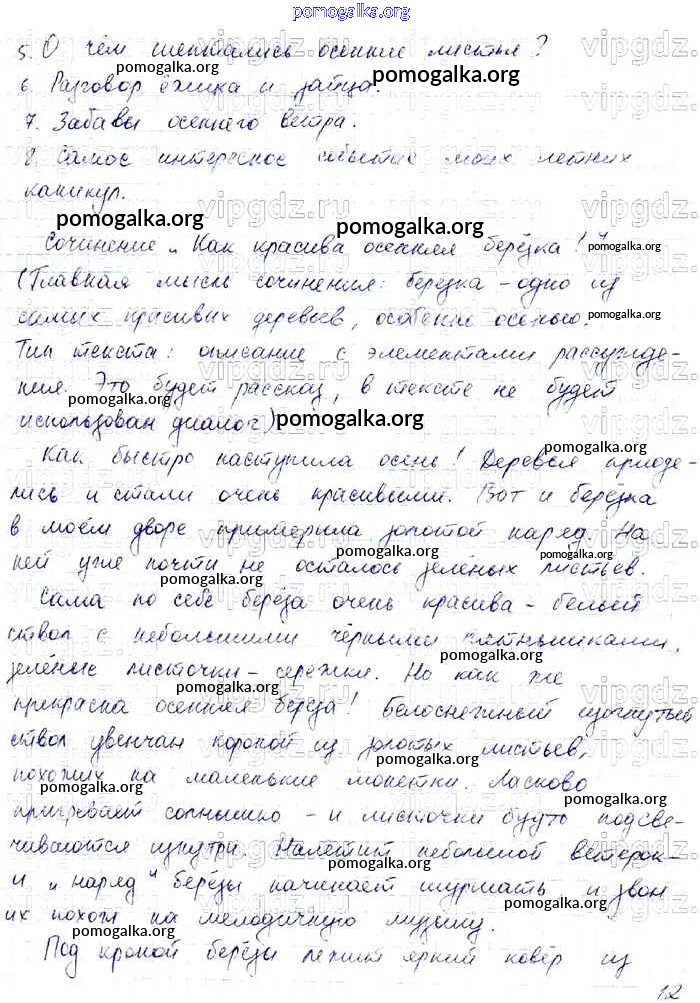 pomogalka.org
5. О чём шептались осенние листья?
6. Разговор ёжика и зайца.
7. Забавы осеннего ветра.
8. Самое интересное событие моих летних
каникул.
Сочинение „Как красива осенняя берёзка!"
(Главная мысль сочинения: берёзка – одно из
самых красивых деревьев, особенно осенью.
Тип текста: описание с элементами рассужде-
ния. Это будет рассказ, в тексте не будет
использован диалог)
Как быстро наступила осень! Деревья приоде-
лись и стали очень красивыми. Вот и берёзка
в моём дворе примерила золотой наряд. На
ней уже почти не осталось зелёных листьев.
Сама по себе берёза очень красива – белый
ствол с небольшими чёрными пятнышками,
зелёные листочки – серёжки. Но как же
прекрасна осенняя берёза! Белоснежный изогнутый
ствол увенчан короной из золотых листьев,
похожих на маленькие монетки. Ласково
пригревает солнышко – и листочки будто подсве-
чиваются изнутри. Налетит небольшой ветерок –
и „наряд" берёзы начинает шуршать и звон
их похож на мелодичную музыку.
Под кроной берёзы лежит яркий ковёр из
12